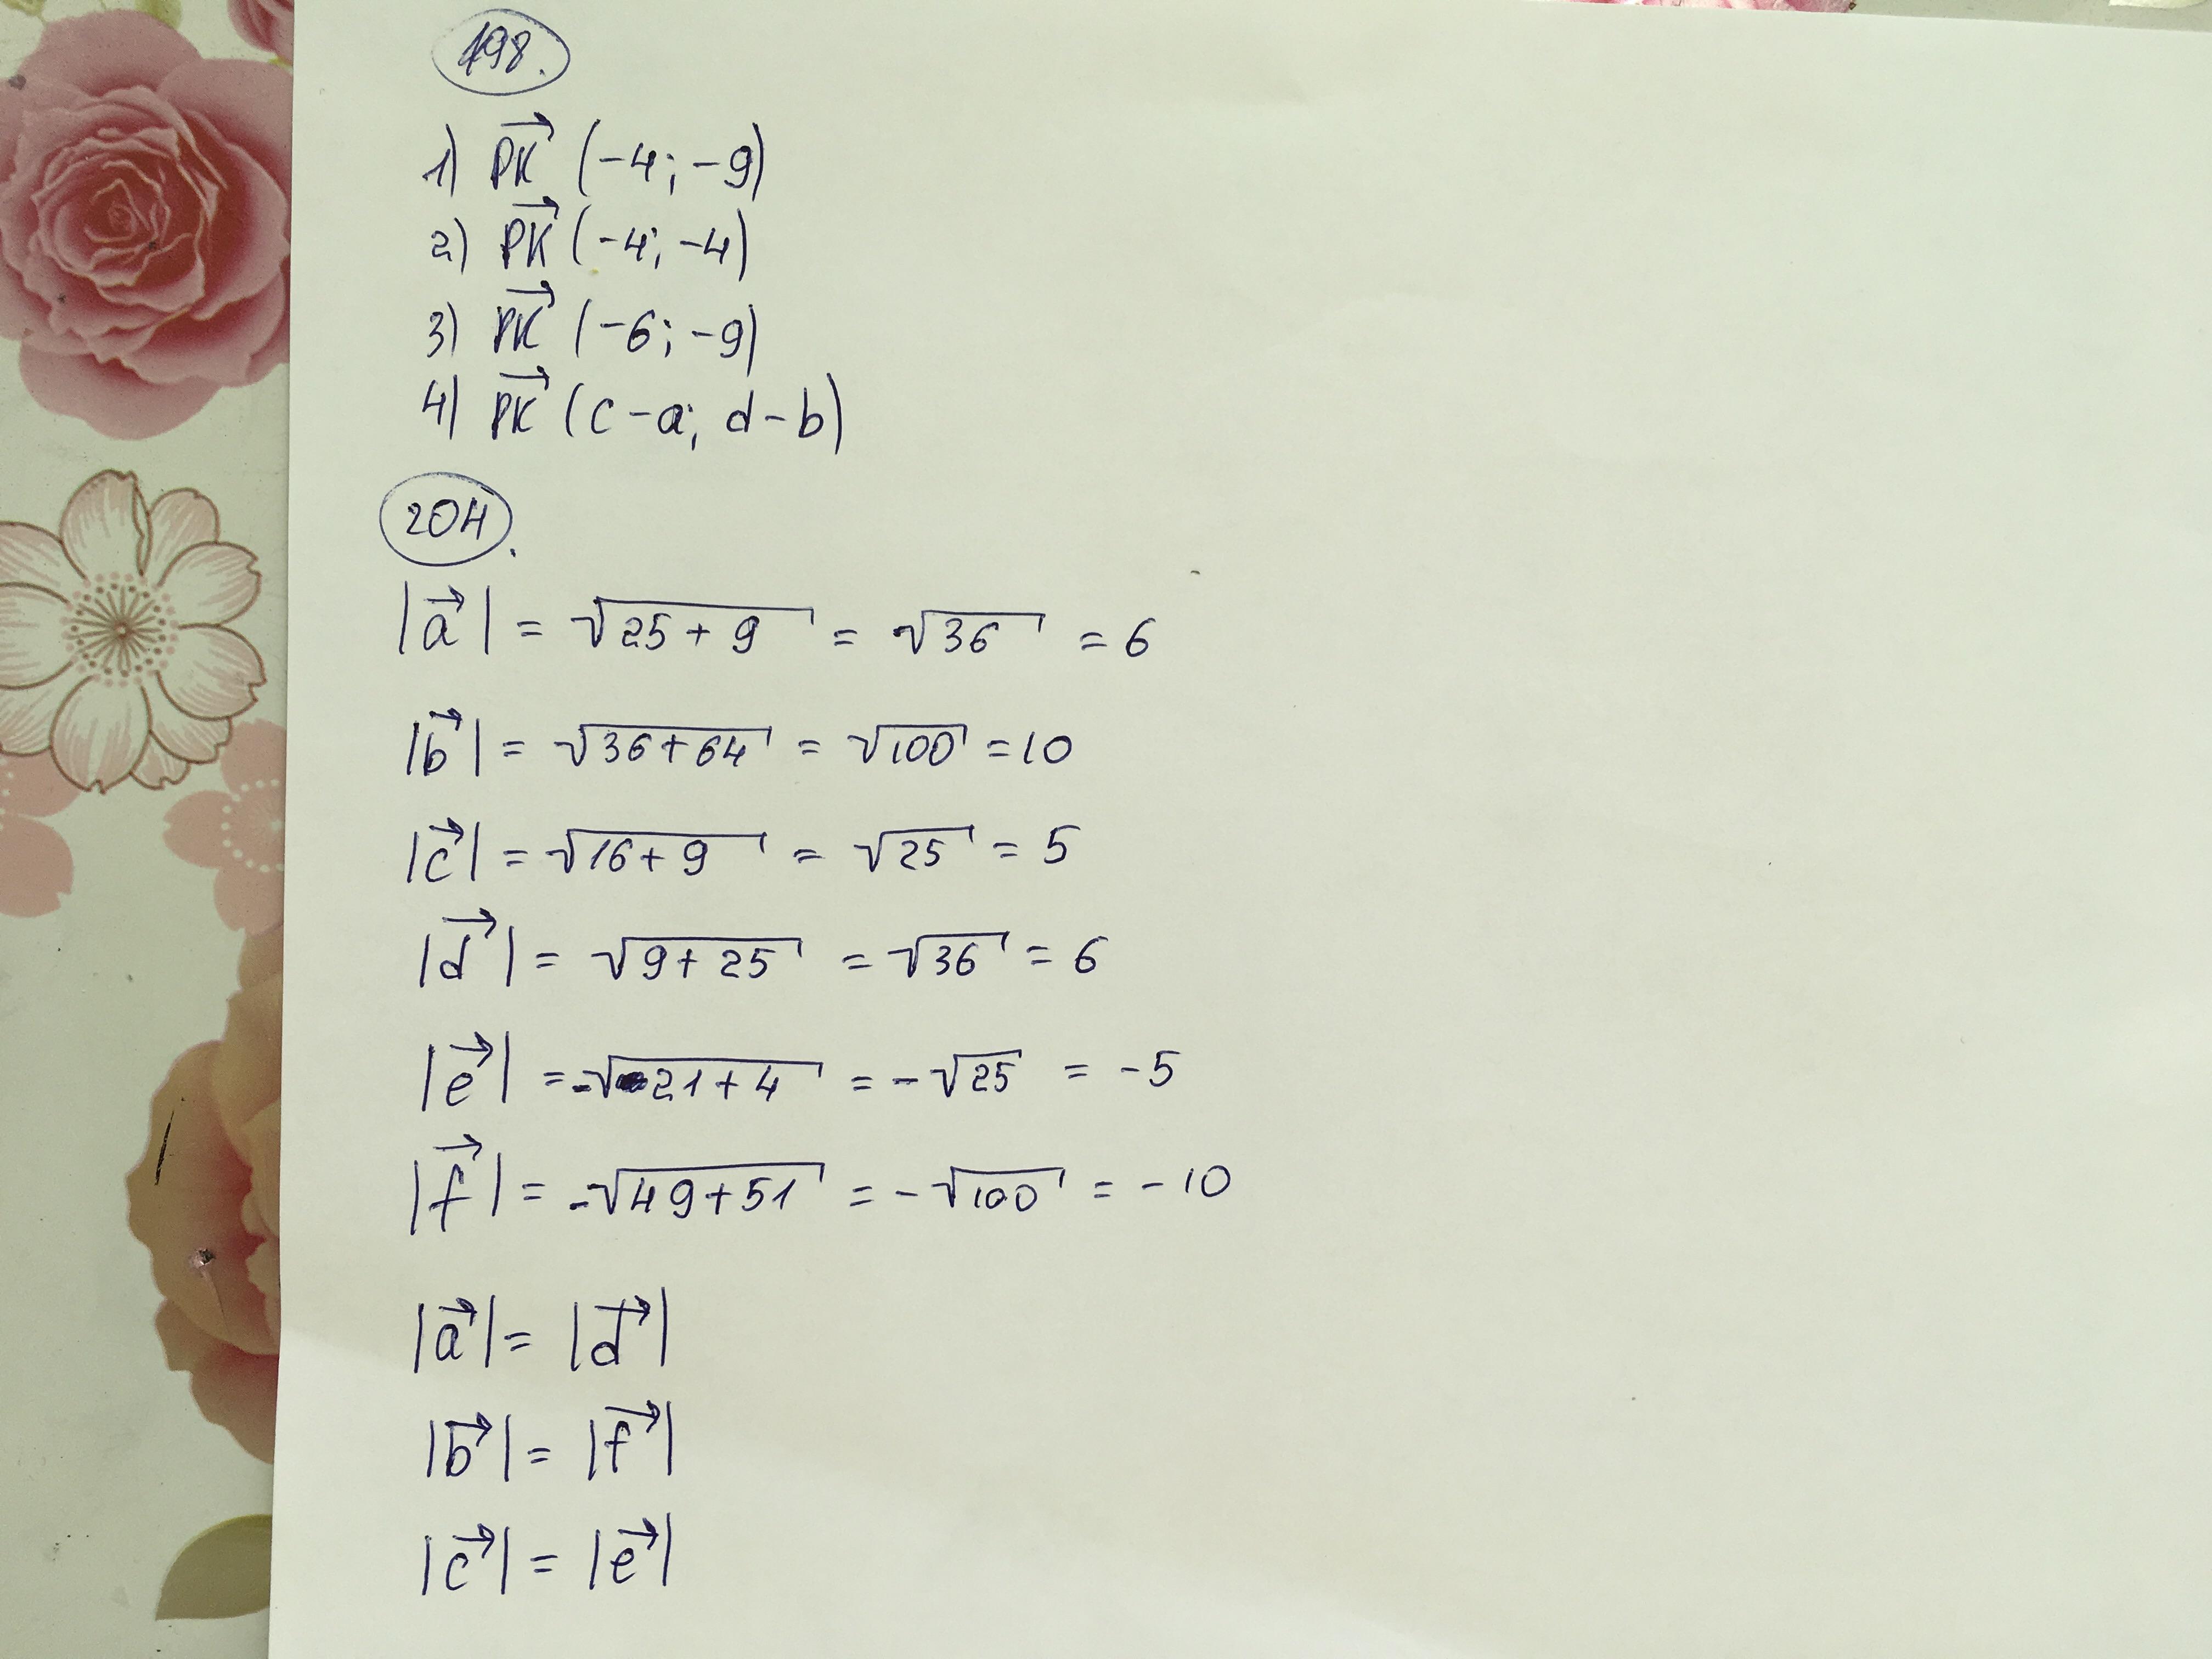 198.
1) PK (-4; -9)
2) PK (-4; -4)
3) PK (-6; -9)
4) PK (c-a; d-b)
204.
|a| = √25+9 = √36 = 6
|b| = √36+64 = √100 = 10
|c| = √16+9 = √25 = 5
|d| = √9+25 = √36 = 6
|e| = -√21+4 = -√25 = -5
|f| = -√49+51 = -√100 = -10
|a| = |d|
|b| = |f|
|c| = |e|